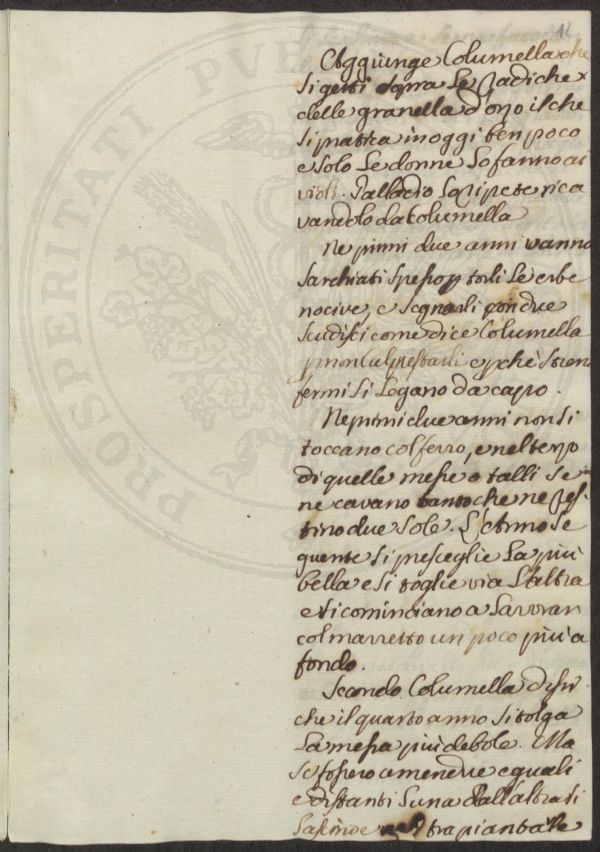 12
Aggiunge Columella che
si getti sopra le radiche
delle granella d'orzo il che
si pratica in oggi ben poco
e solo le donne lo fanno ai
violi. Palladio lo ripete rica
vandolo da Columella
Ne primi due anni vanno
sarchiati spesso p torli le erbe
nocive, e segnarli con due
scudisci come dice Columella
p non calpestarli e pchè stieno
fermi si legano da capo.
Ne primi due anni non si
toccano col ferro, e nel tempo
di quelle messe o talli se
ne cavano tanto che ne res
tino due sole. L'Anno se
guente si presceglie la più
bella e si toglie via l'altra
e si cominciano a lavorar
col marretto un poco più a
fondo.
Secondo Columella
che il quarto anno si tolga
la messa più debole. Ma
se fossero amendue eguali
e distanti l'una dall'altra si
trapiantate
PROSPERITATI PUB